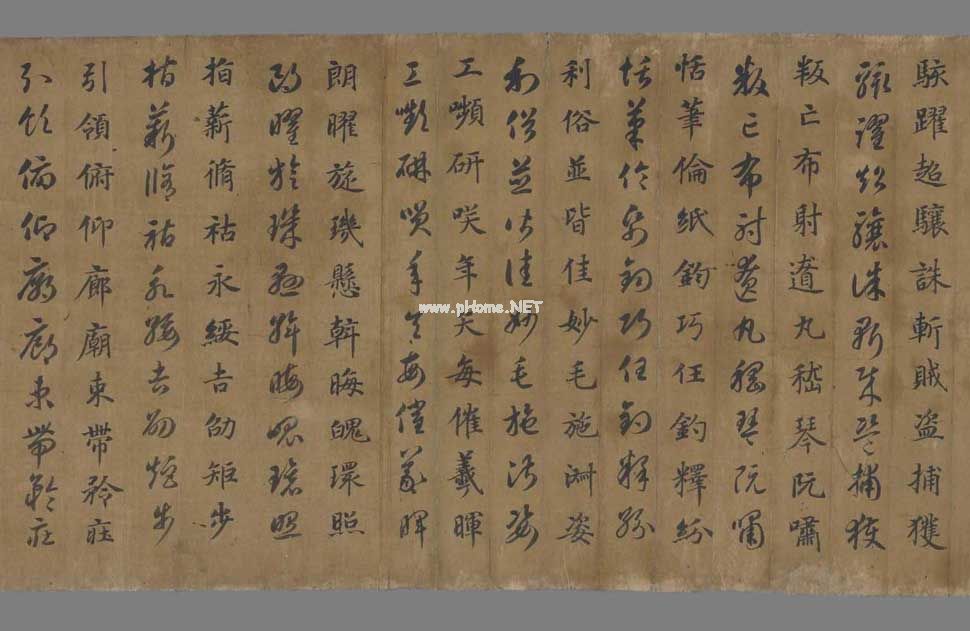 駭躍超驤誅斬賊盗捕獲
駭躍超驤誅斬賊盗捕獲
叛亡布射遼丸嵇琴阮嘯
叛亡布射遼丸嵇琴阮嘯
恬筆倫紙鈞巧任釣釋紛
恬筆倫紙鈞巧任釣釋紛
利俗並皆佳妙毛施淑姿
利俗並皆佳妙毛施淑姿
工嚬研咲年矢每催羲暉
工嚬研咲年矢每催羲暉
朗曜旋璣懸斡晦魄環照
朗曜旋璣懸斡晦魄環照
指薪脩祜永綏吉劭矩步
指薪脩祜永綏吉劭矩步
引領俯仰廊廟束帶矜莊
引領俯仰廊廟束帶矜莊
www.pHome.NET